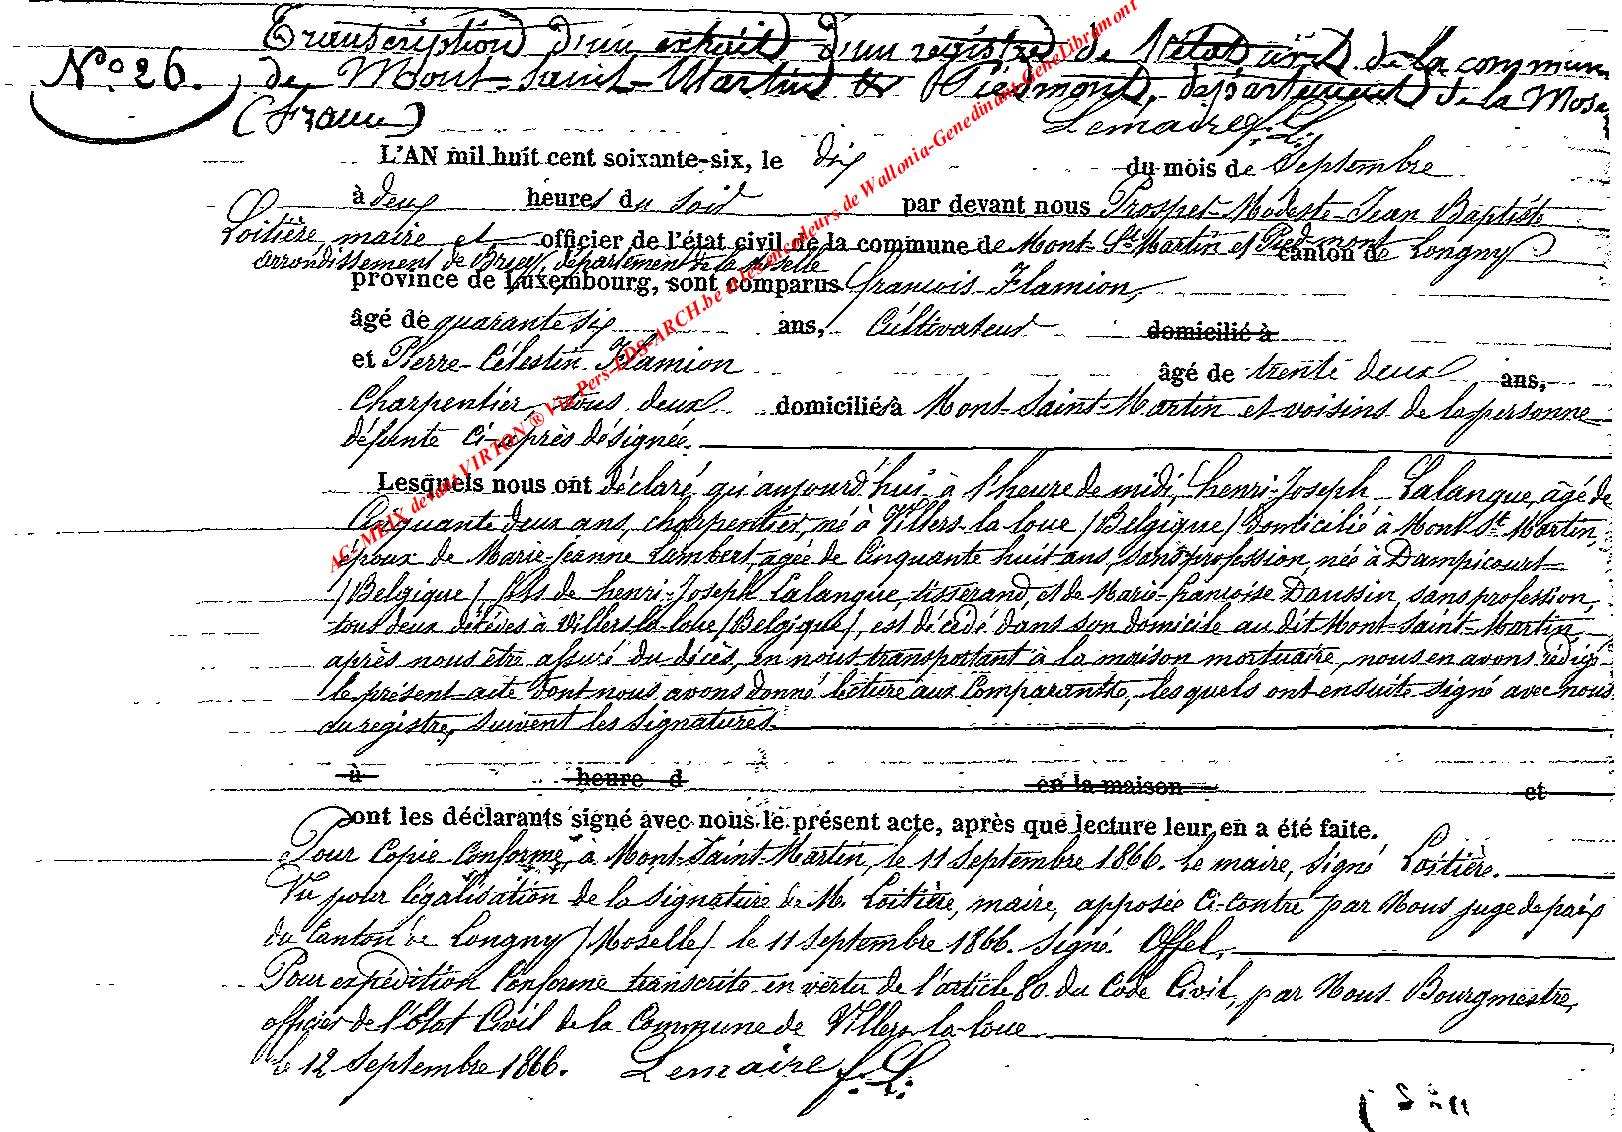 Transcription d'un extrait d'un registre de l'état civil de la commune
N.º 26. de Mont-Saint-Martin & Piedmont, département de la Mose
(France) Lemaire f. L.
L'AN mil huit cent soixante-six, le dix du mois de Septembre
à deux heures du soir par devant nous Prosper-Modeste-Jean Baptiste
Loitière, maire et officier de l'état civil de la commune de Mont-St Martin et Piedmont canton de Longny
arrondissement de Briey, département de la Moselle
province de Luxembourg, sont comparus François Flamion,
âgé de quarante six ans, Cultivateur domicilié à
et Pierre-Célestin Flamion âgé de trente deux ans,
Charpentier, tous deux domiciliés à Mont-Saint-Martin et voisins de la personne
défunte ci-après désignée.
Lesquels nous ont déclaré qu'aujourd'hui à l'heure de midi, henri-Joseph Lalangue, âgé de
Cinquante deux ans, charpentier, né à Villers-la-loue (Belgique) Domicilié à Mont St Martin,
époux de Marie-Jeanne Lambert, agée de Cinquante huit ans, sans profession, née à Dampicourt
(Belgique) fils de henri-Joseph Lalangue, tisserand, et de Marie-françoise Daussin sans profession,
tous deux décédés à Villers-la-loue (Belgique), est décédé dans son domicile au dit Mont-Saint-Martin,
après nous être assuré du décès, en nous transportant à la maison mortuaire, nous en avons rédigé
le présent acte dont nous avons donné lecture aux Comparants, lesquels ont ensuite signé avec nous
au registre, suivent les signatures.
à heure d en la maison et
ont les déclarants signé avec nous le présent acte, après que lecture leur en a été faite.
Pour Copie Conforme, à Mont-Saint-Martin, le 11 Septembre 1866. Le maire, signé Loitière.
Vu pour légalisation de la signature de M. Loitière, maire, apposée Ci-contre par Nous juge de paix
du Canton de Longny (Moselle) le 11 Septembre 1866. Signé Offel.
Pour expédition Conforme transcrite en vertu de l'article 80 du Code Civil, par Nous Bourgmestre,
officier de l'Etat Civil de la Commune de Villers-la-loue
le 12 Septembre 1866. Lemaire f. L.